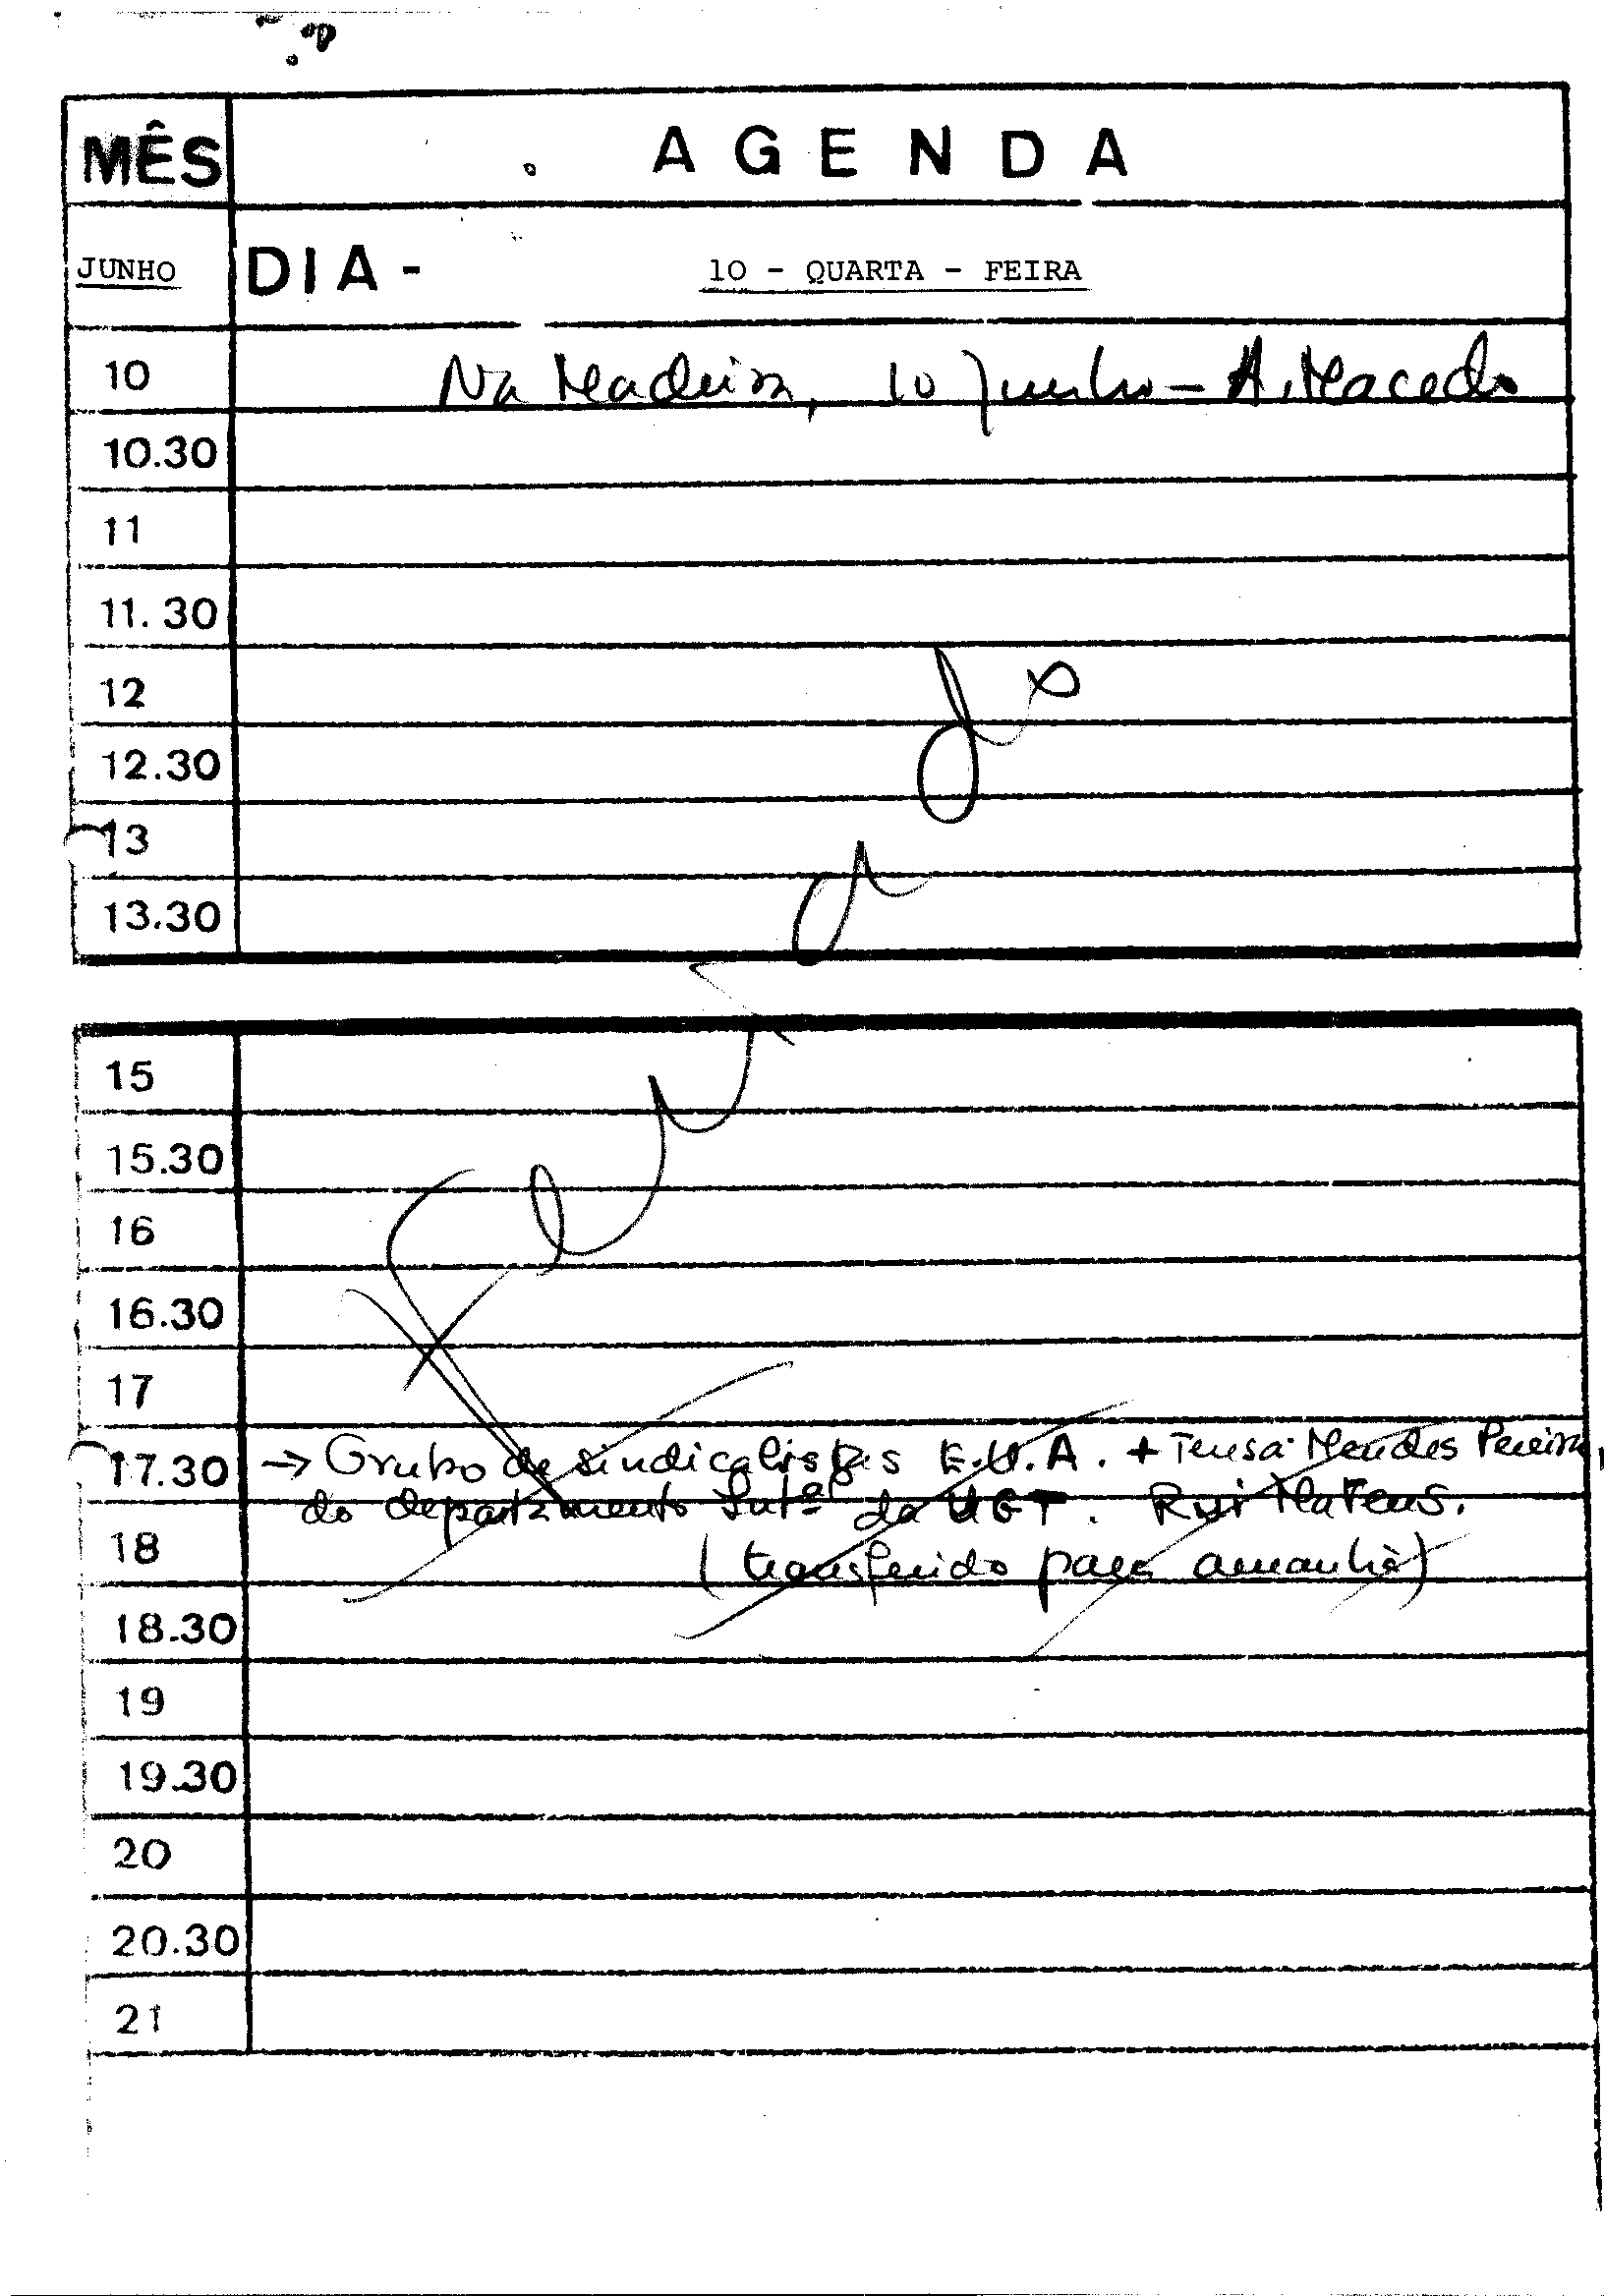 MÊS
A G E N D A
JUNHO
DIA -
10 - QUARTA - FEIRA
10
Na Madeira, 10 Junho - A. Macedo
10.30
11
11.30
12
12.30
13
13.30
Feriado
15
15.30
16
16.30
17
17.30 → Grupo de sindicalistas E.U.A. + Teresa Mendes Pereira,
do departamento Intal da UGT. Rui Mateus.
18
(transferido para amanhã)
18.30
19
19.30
20
20.30
21